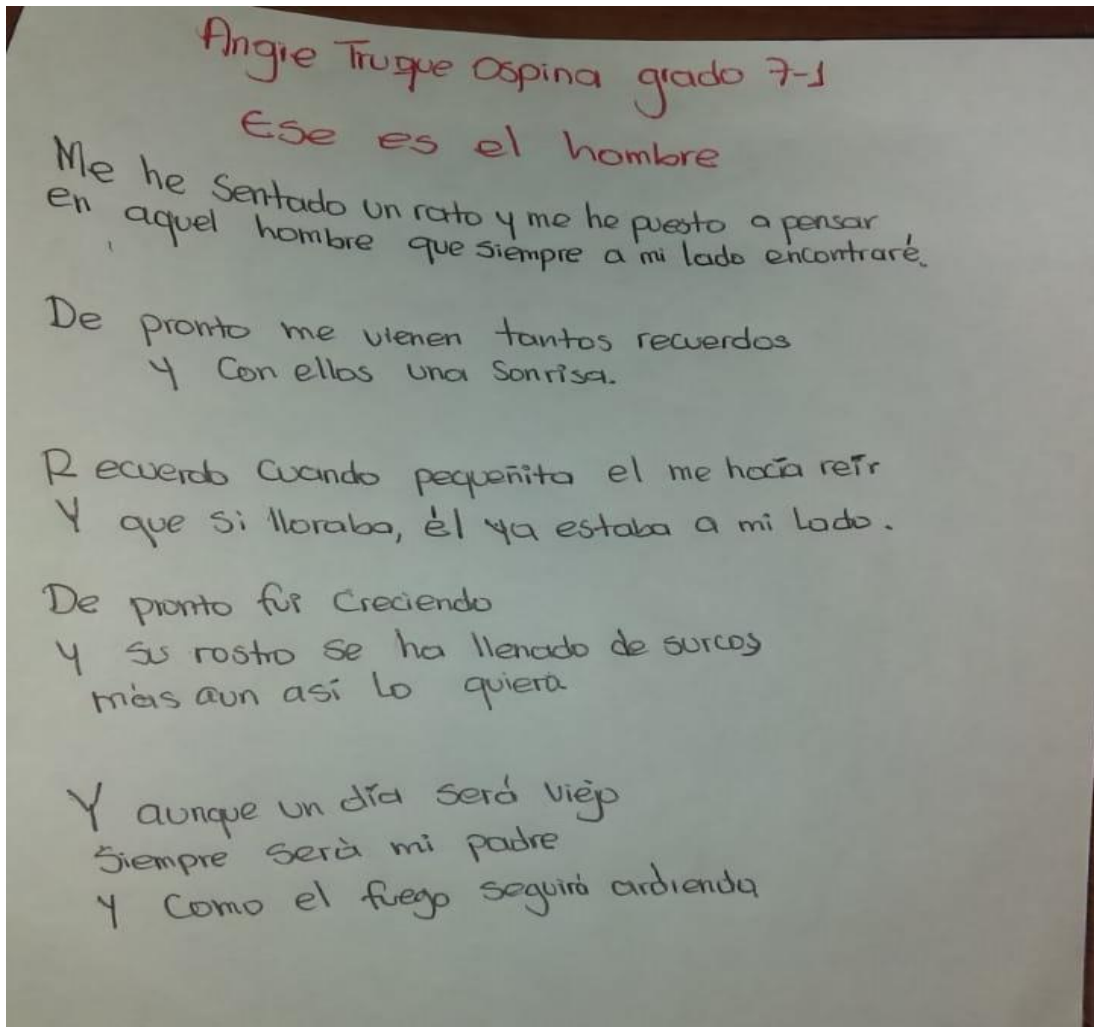 Angie Truque Ospina grado 7-1
Ese es el hombre
Me he sentado un rato y me he puesto a pensar
en aquel hombre que siempre a mi lado encontraré.
De pronto me vienen tantos recuerdos
Y con ellos una sonrisa.
Recuerdo cuando pequeñita el me hacía reír
Y que si lloraba, él ya estaba a mi lado.
De pronto fui creciendo
Y su rostro se ha llenado de surcos
más aun así lo quiera
Y aunque un día será viejo
siempre serà mi padre
Y como el fuego seguirá ardienda